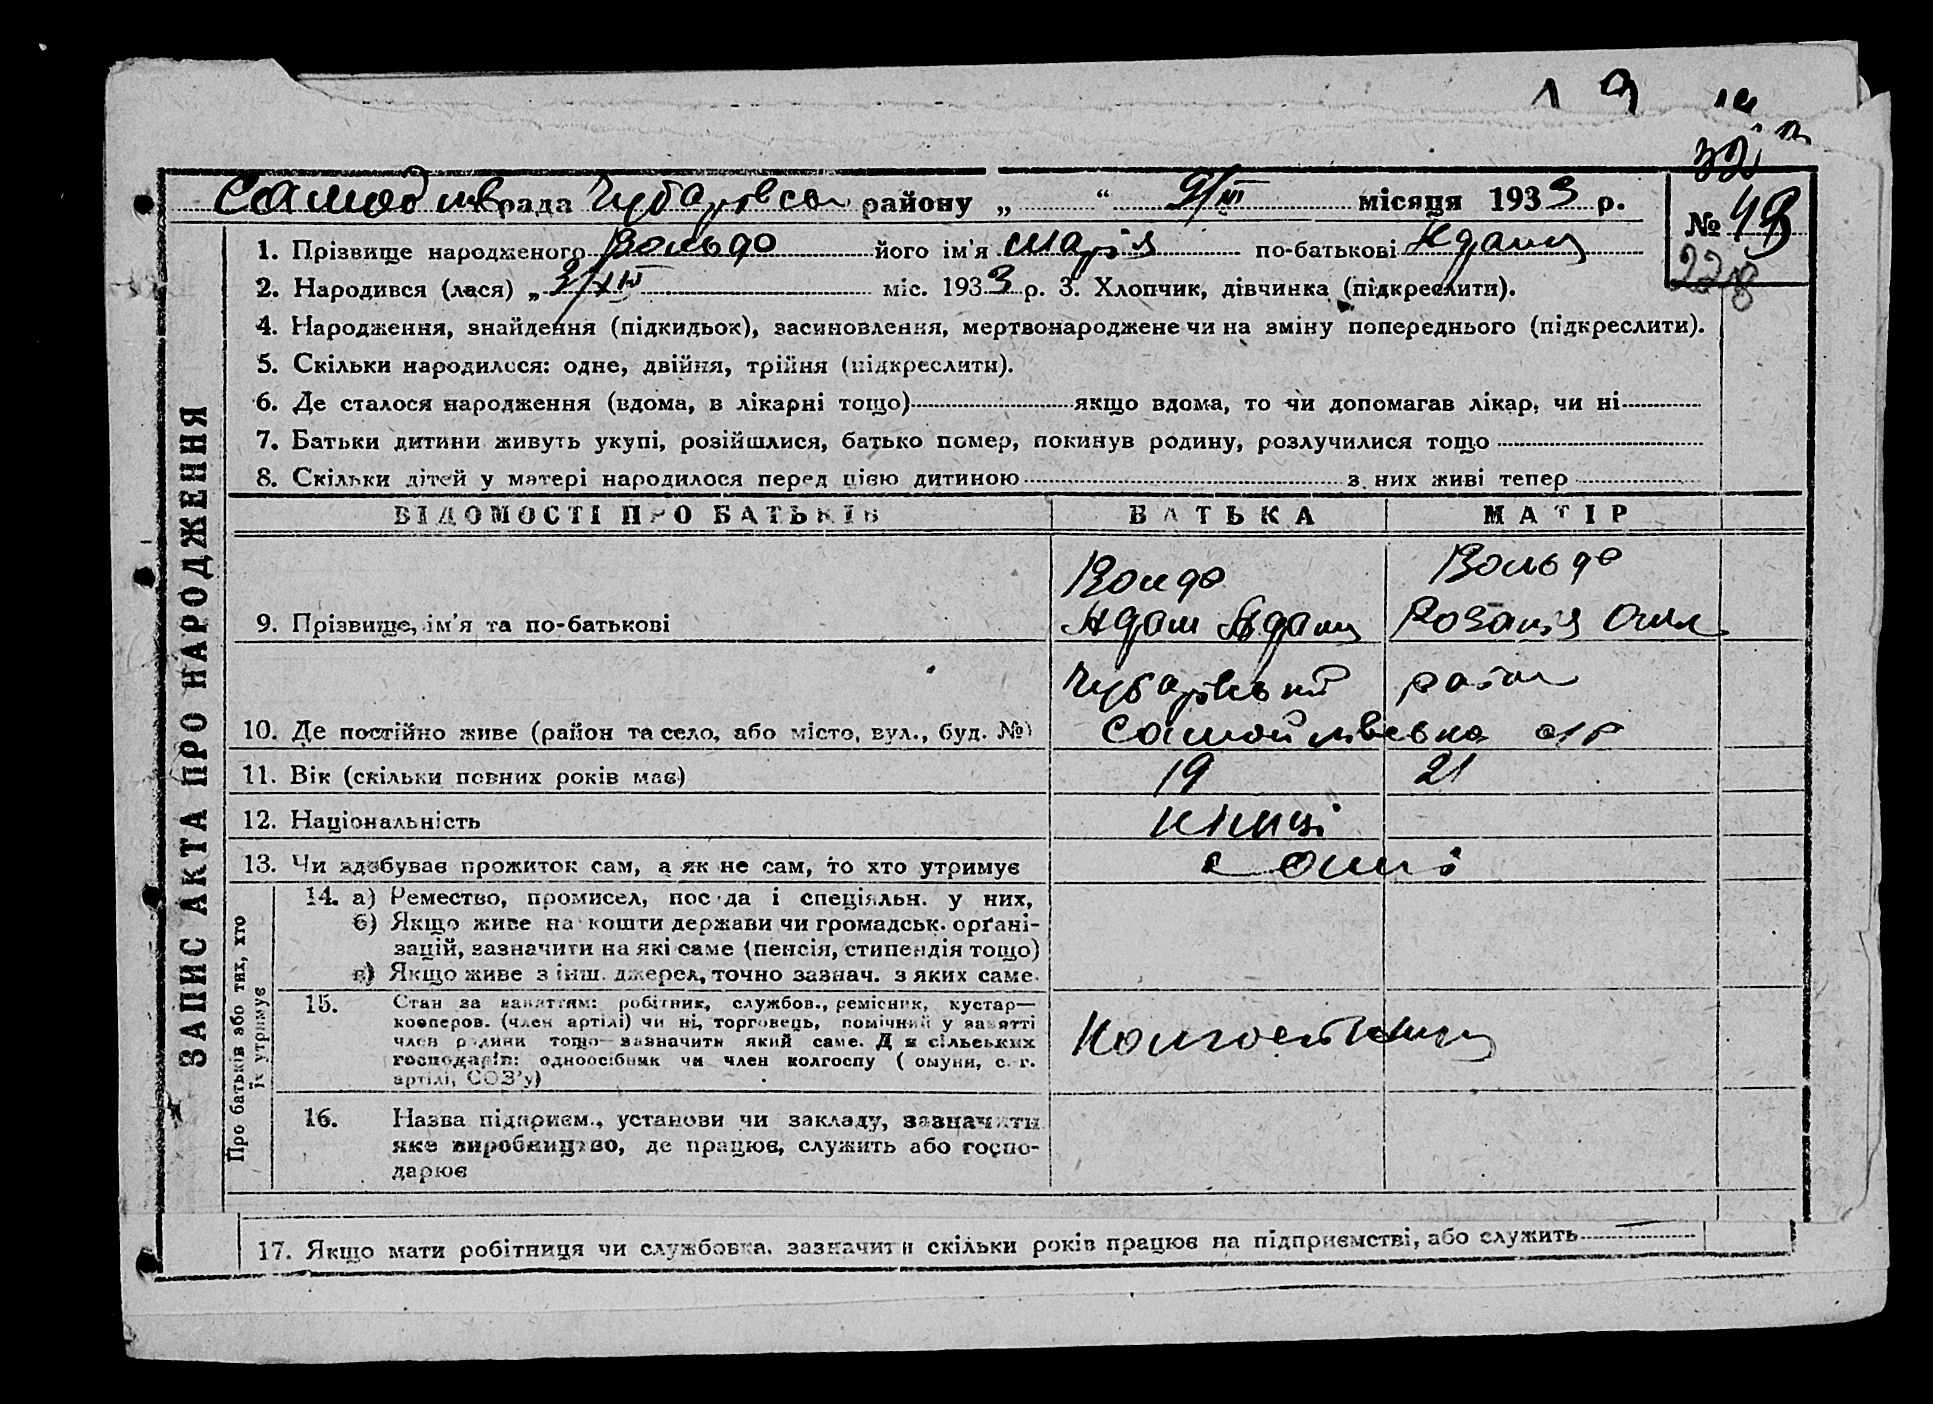 32
Самойлів рада Чубарівськ району „ “ 9/III місяця 1933 р.
№ 49
1. Прізвище народженого Вольдо його ім'я Марія по-батькові Адам
2. Народився (лася) „ міс. 1933 р. 3. Хлопчик, дівчинка (підкреслити).
4. Народження, знайдення (підкидьок), засиновлення, мертвонароджене чи на зміну попереднього (підкреслити).
5. Скільки народилося: одне, двійня, трійня (підкреслити).
6. Де сталося народження (вдома, в лікарні тощо) якщо вдома, то чи допомагав лікар, чи ні
7. Батьки дитини живуть укупі, розійшлися, батько помер, покинув родину, розлучилися тощо
8. Скільки дітей у матері народилося перед цією дитиною з них живі тепер
ЗАПИС АКТА ПРО НАРОДЖЕННЯ
ВІДОМОСТІ ПРО БАТЬКІВ БАТЬКА МАТІР
Вольдо Вольдо
9. Прізвище, ім'я та по-батькові Адам Адам Розалія
Чубарівський район
10. Де постійно живе (район та село, або місто, вул., буд. №) Самойлівська с/р
11. Вік (скільки повних років має) 19 21
12. Національність німці
13. Чи здобуває прожиток сам, а як не сам, то хто утримує самі
Про батьків або тих, хто
їх утримує
14. а) Ремество, промисел, посада і спеціяльн. у них,
б) Якщо живе на кошти держави чи громадськ. орґані-
зацій, зазначити на які саме (пенсія, стипендія тощо)
в) Якщо живе з інш. джерел, точно зазнач. з яких саме.
15. Стан за заняттям: робітник, службов., ремісник, кустар—
кооперов. (член артілі) чи ні, торговець, помічний у занятті
член родини тощо—зазначити який саме. Для сільських
господарів: одноосібник чи член колгоспу (комуни, с.-г.
артілі, СОЗ'у) Колгоспник
16. Назва підприєм., установи чи закладу, зазначити
яке виробництво, де працює, служить або госпо-
дарює
17. Якщо мати робітниця чи службовка, зазначити скільки років працює на підприємстві, або служить